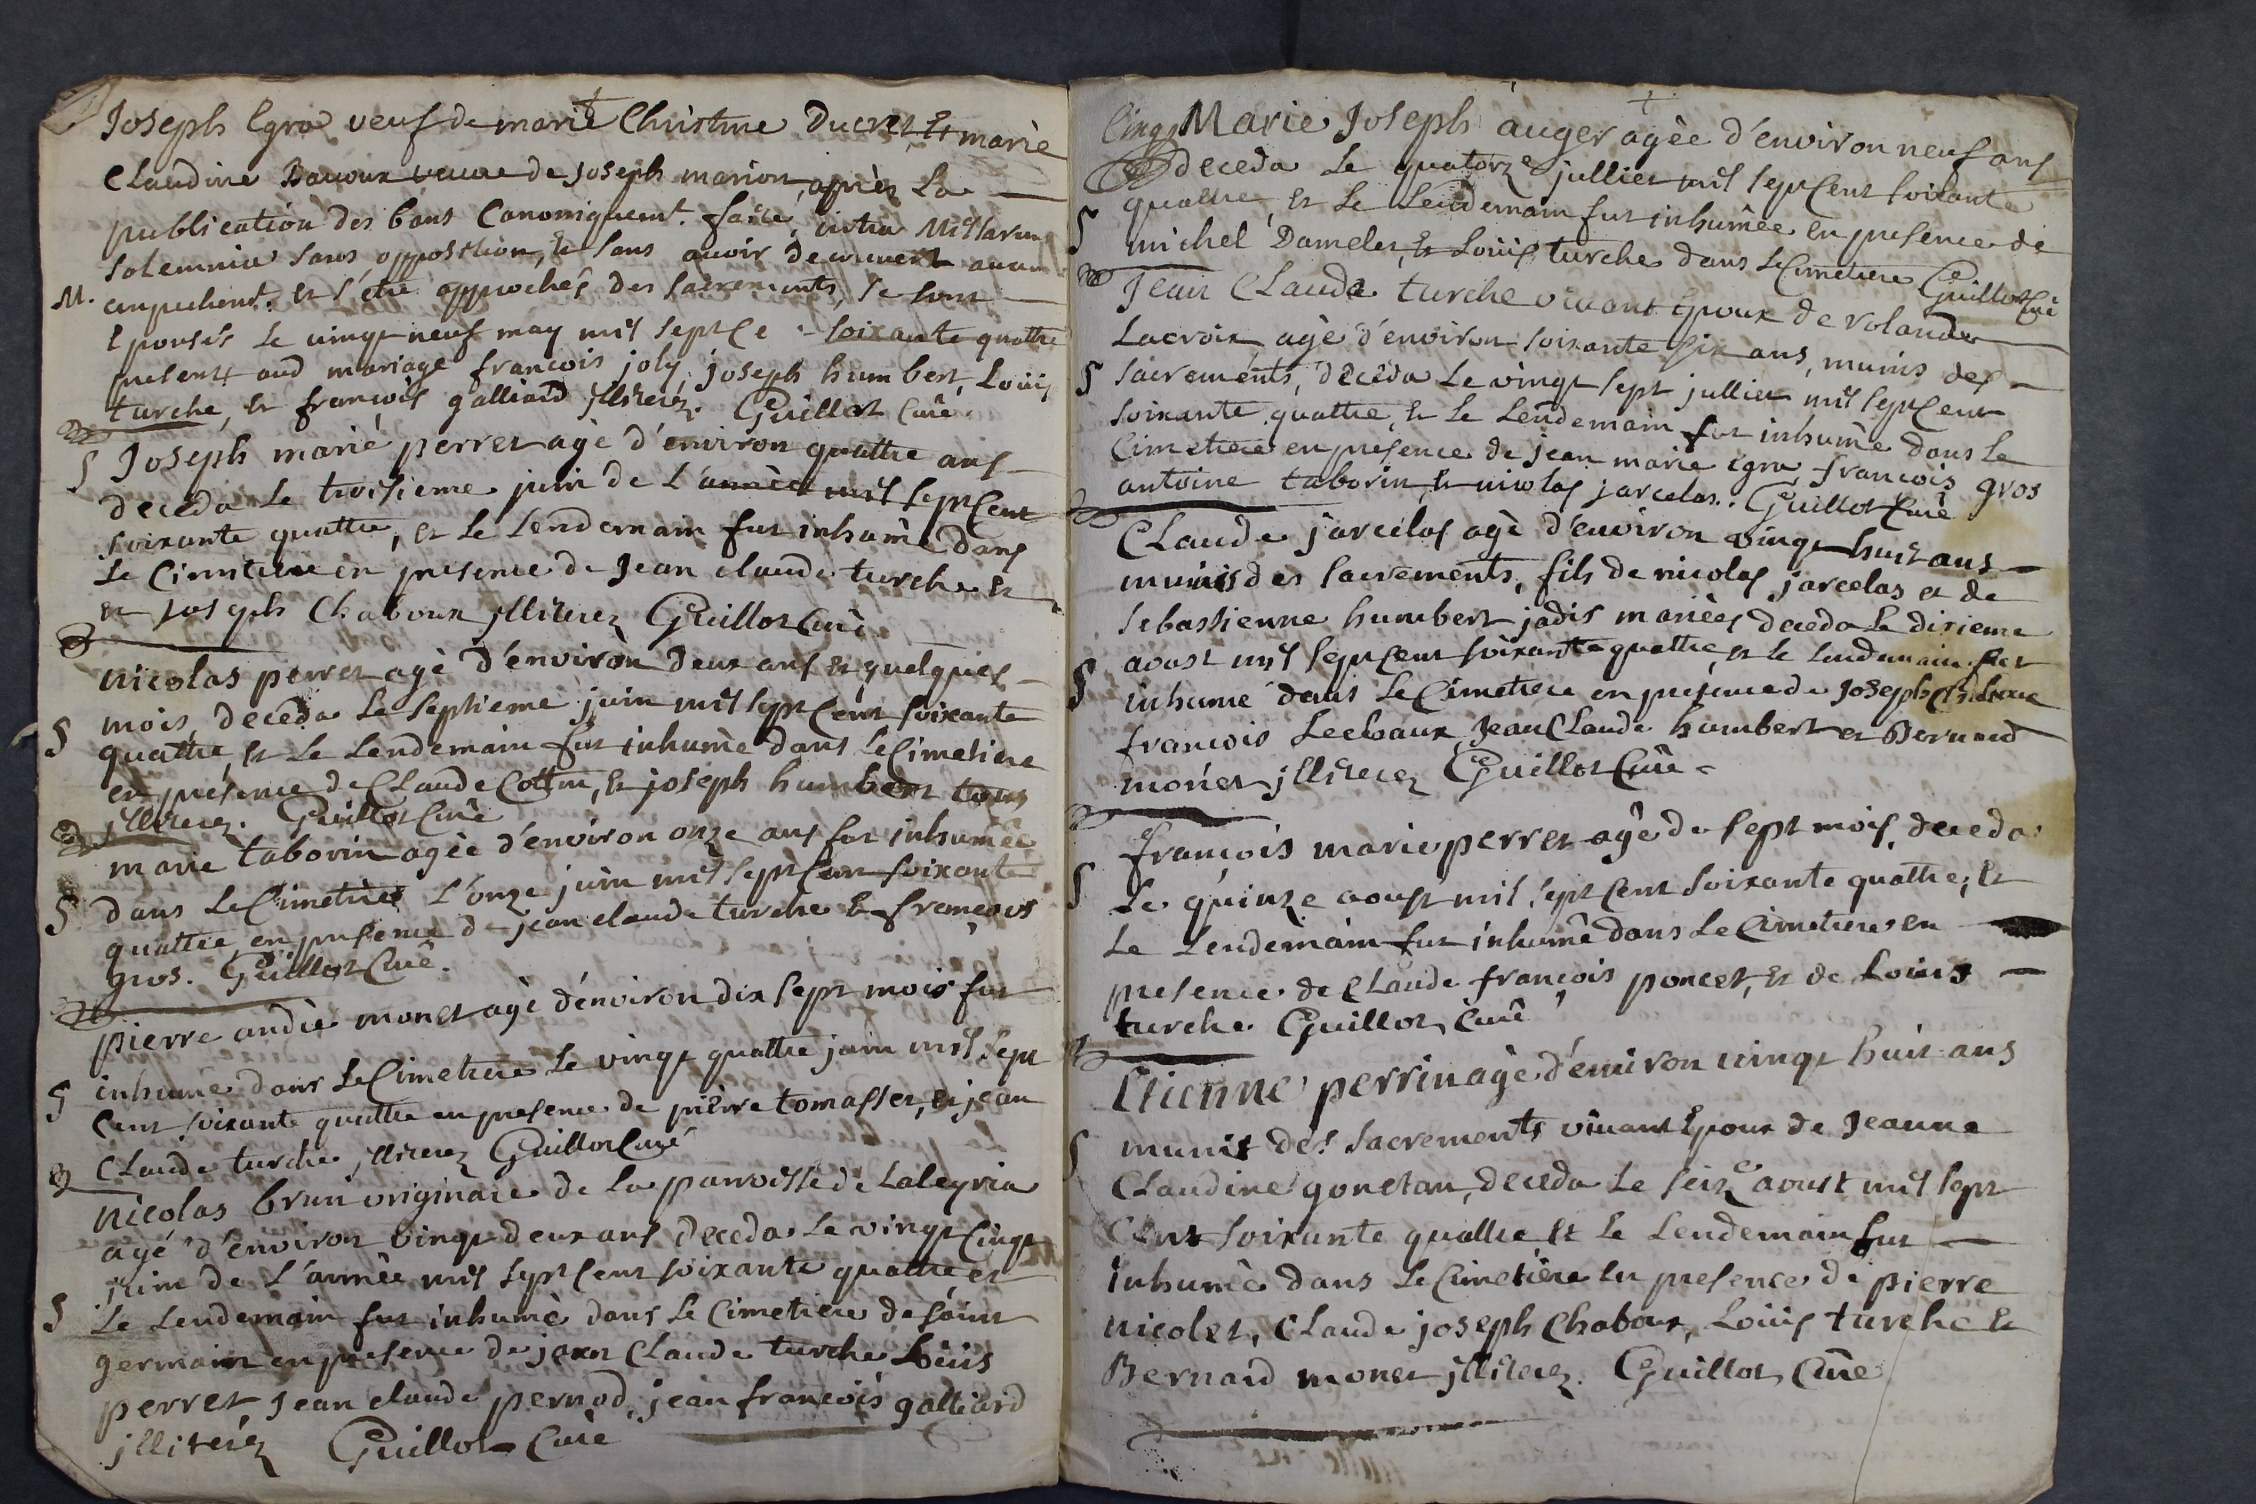 Joseph Egra veuf de marie Christine Ducret, Et marie
Claudine Davoux veuve de joseph marion, apprès La
publication des bans Canoniquemt. faite, intra Missarum
solemnia sans opposition, Et sans avoir decouvert aucun
M. empechemt. Et s'etre approchés des sacrements, se sont
Epousés Le vingt neuf may mil sept Ce soixante quattre
presents aud mariage francois joly, joseph humbert, Loüis
turche, Et francois galliard jlliterez. Guillot Curé.
§ Joseph marie perret agè d'environ quattre ans
deceda Le troisieme juin de L'année mil sept Cent
soixante quattre, et Le Lendemain fut inhumè dans
Le Cimetiere en presence de Jean claude turche Et
et joseph Chaboux jlliterez Guillot Curè
nicolas perret agè d'environ deux ans Et quelques
§ mois, deceda Le septieme juin mil sept Cent soixante
quattre, Et Le Lendemain fut inhumè dans Le Cimetiere
en presence de Claude Cottin, Et joseph humbert tous
jlliterez. Guillot Curè
marie taborin agèe d'environ onze ans fut inhumée
§ dans Le Cimetiere L'onze juin mil sept Cent soixante
quattre en presence de jean claude turche Et francois
gros. Guillot Curè.
pierre andrè monet agè d'environ dix sept mois fut
§ inhumè dans Le Cimetiere Le vingt quattre juin mil sept
Cent soixante quattre en presence de pierre tomasset, Et jean
Claude turche jlliterez Guillot Curé
nicolas brun originaire de La parroisse de Laleyria
agé d'environ vingt deux ans deceda Le vingt Cinq
juin de L'année mil sept Cent soixante quattre et
§ Le Lendemain fut inhumè dans Le Cimetiere de saint
germain en presence de jean Claude turche Loüis
perret Jean claude pernod, jean francois galliard
jlliterez Guillot Curè
Cinq Marie Joseph auger agèe d'environ neuf ans
deceda Le quatorze juillet mil sept Cent soixante
§ quattre, Et Le Lendemain fut inhumèe en presence de
michel Damelet, Et Loüis turche dans Le Cimetiere Guillot Curé
Jean Claude turche vivant Epoux de rolande
Lacroix agè d'environ soixante six ans, munis des
§ sacrements, deceda Le vingt sept jullier mil sept Cent
soixante quattre, Et Le Lendemain fut inhumè dans Le
Cimetiere en presence de jean marie Egra, francois gros
antoine taborin, Et nicolas jarcelas. Guillot Curè
Claude jarcelas agè d'environ vingt huit ans
munis des sacrements, fils de nicolas jarcelas et de
sebastienne humbert jadis mariès deceda Le dixieme
aoust mil sept Cent soixante quattre, et Le Lendemain fut
§ inhumé dans Le Cimetiere en presence de Joseph Chaboux
francois Jean Claude humbert et Bernard
monet jlliterez Guillot Curè
francois marie perret agè de sept mois, deceda
§ Le quinze aoust mil sept Cent soixante quattre, Et
Le Lendemain fut inhumè dans Le Cimetiere en
presence de Claude francois poncet, Et de Loüis
turche Guillot Curè
Etienne perrin agè d'environ vingt huit ans
§ munit des sacrements vivant Epoux de Jeanne
Claudine gonetan, deceda Le seize aoust mil sept
Cent soixante quattre Et Le Lendemain fut
inhumèe dans Le Cimetière En presence de pierre
nicolet, Claude joseph Chaboux, Loüis turche Et
Bernard monet jlliterez. Guillot Curè